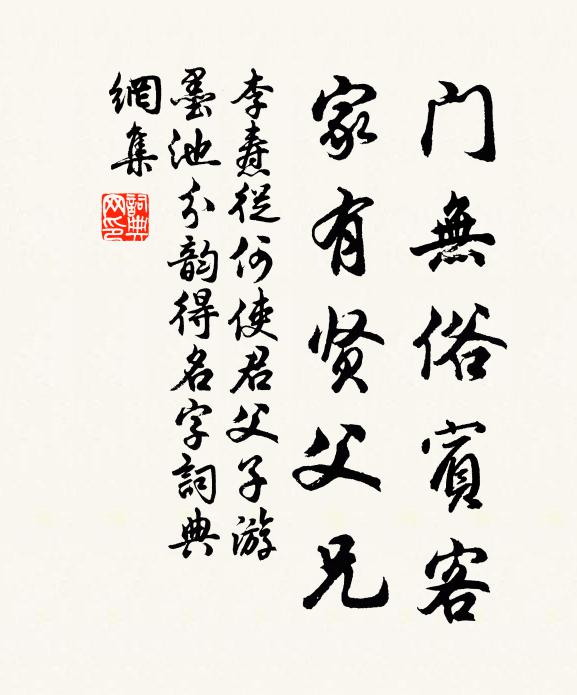 門無俗賓客
家有贤父兄
李燾從何使君父子游
墨池分韵得名字詞典
網集
詞典网印